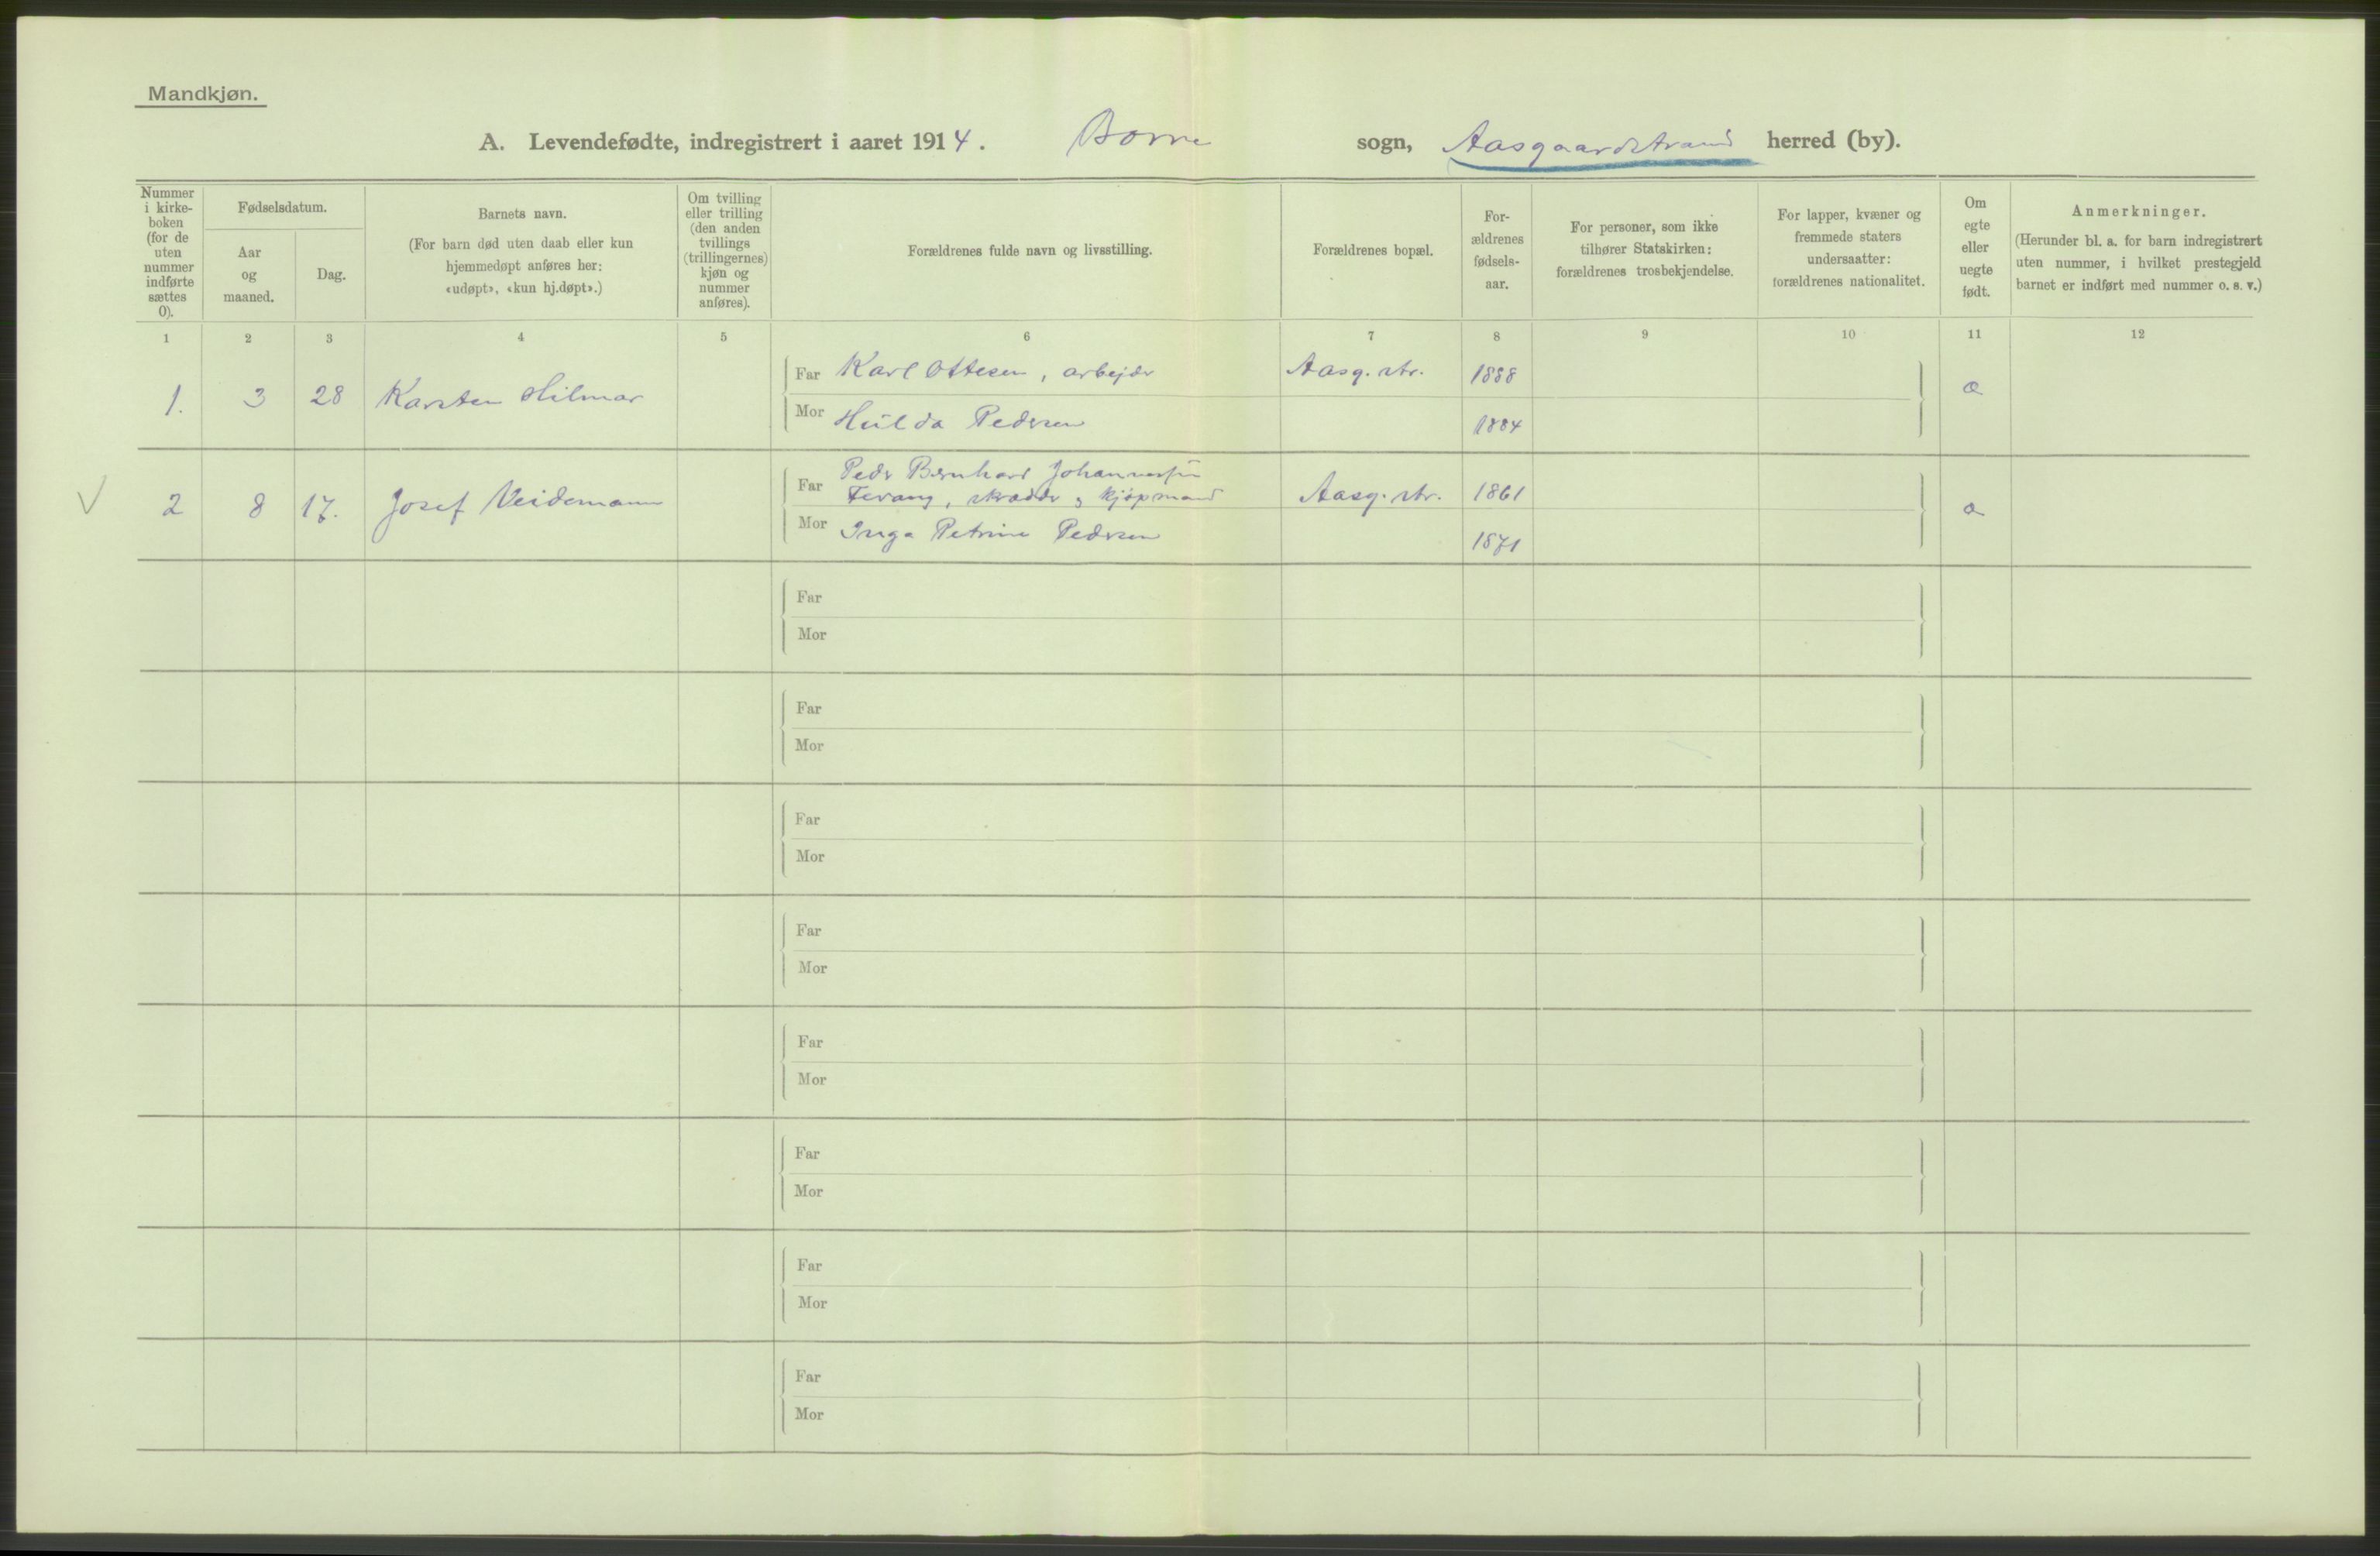 Mandkjøn.
A. Levendefødte, indregistrert i aaret 1914. Borre sogn, Aasgaardstrand herred (by).
Nummer i kirke-boken (for de uten nummer indførte sættes 0).
Fødselsdatum.
Aar og maaned.
Dag.
Barnets navn.
(For barn død uten daab eller kun hjemmedøpt anføres her: «udøpt», «kun hj.døpt».)
Om tvilling eller trilling (den anden tvillings (trillingernes) kjøn og nummer anføres).
Forældrenes fulde navn og livsstilling.
Forældrenes bopæl.
For-ældrenes fødsels-aar.
For personer, som ikke tilhører Statskirken: forældrenes trosbekjendelse.
For lapper, kvæner og fremmede staters undersaatter: forældrenes nationalitet.
Om egte eller uegte født.
Anmerkninger.
(Herunder bl. a. for barn indregistrert uten nummer, i hvilket prestegjeld barnet er indført med nummer o. s. v.)
1 2 3 4 5 6 7 8 9 10 11 12
1. 3 28 Karsten Hilmar Far Karl Ottesen, arbejder Aasg.str. 1888 a
Mor Hulda Pedersen 1884
V 2 8 17. Josef Veidemann Far Peder Bernhard Johannessen
Tevang, skrædder & kjøpmand Aasg.str. 1861 a
Mor Inga Petrine Pedersen 1871
Far
Mor
Far
Mor
Far
Mor
Far
Mor
Far
Mor
Far
Mor
Far
Mor
Far
Mor